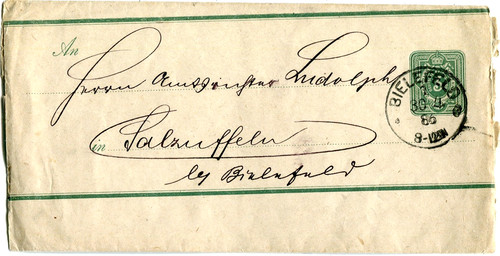 An
Herrn Amtsrichter Ludolph
in Salzuffeln
bei Bielefeld
3
BIELEFELD
30 11
86
8-12 N